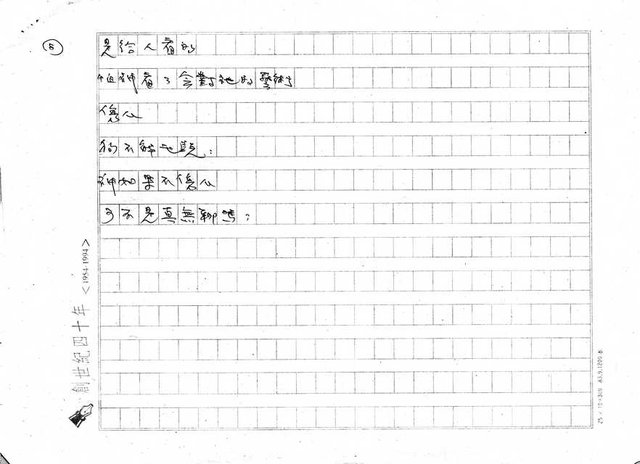 5
是給人看的
但神看了會對她的藝術
傷心
狗不解地說：
神如果不傷心
可不是真無聊嗎？
創世紀四十年
<1954-1994>